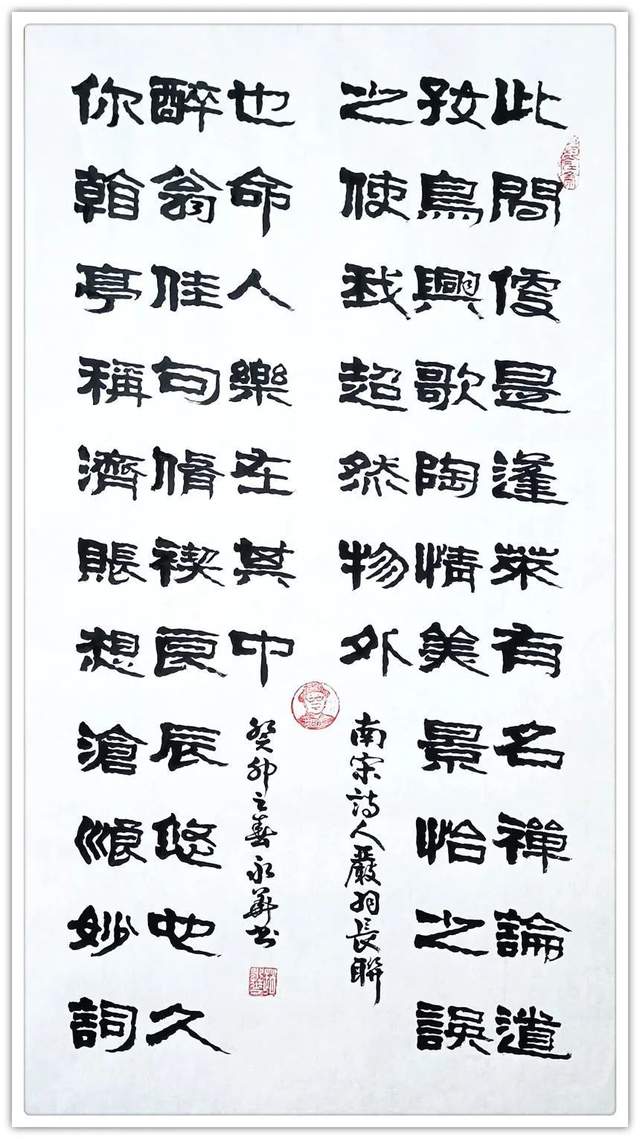 此間便是蓬萊有名禪論道
好鳥興歌陶情美景怡之誤
之使我超然物外
南宋詩人嚴羽長聯
你翰亭稱濟賬想滄浪妙詞
醉翁佳句脩禊良辰悠也久
也命人樂在其中
癸卯之春永華書